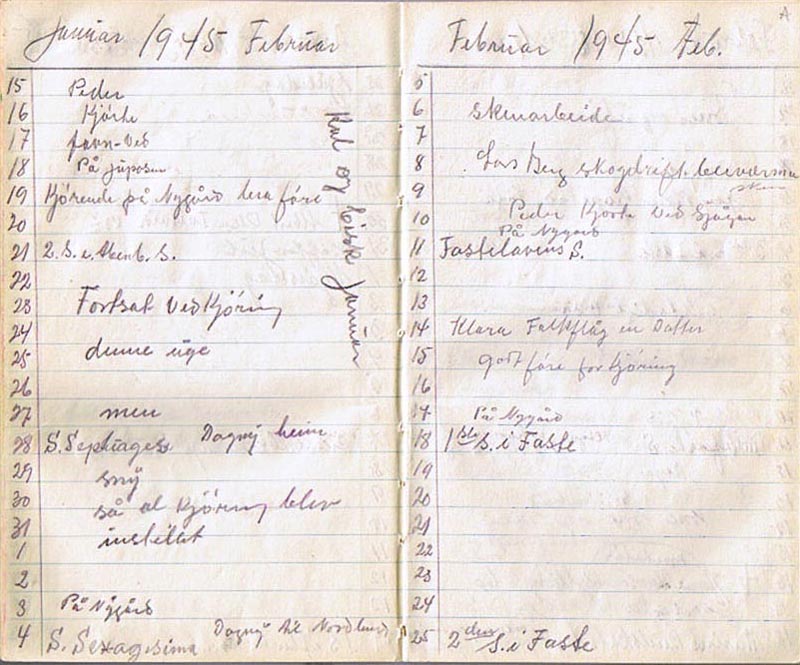 Januar 1945 Februar
15 Peder
16 Kjørte
17 favn-ved
18 På
19 Kjørende på Nygård bra føre
20
21 2. S. e. S.
22
23 Fortsat Vedkjøring
24
25 denne uge
26
27 men
28 S. Septuages Dagny heim
29 sny
30 så al Kjøring blev
31 instillet
1
2
3 På Nygård
4 S. Sexagesima Dagny til Nordland
Kal og bisk Januar
Februar 1945 Feb.
5
6 skmarbeide
7
8 Lars Berg skogdrift
9
10 Peder Kjørte Ved
På Nygård
11 Fastelavens S.
12
13
14 Klara Falkflåg en Datter
15 godt føre for Kjøring
16
17 På Nygård
18 1ste S. i Faste
19
20
21
22
23
24
25 2den S. i Faste